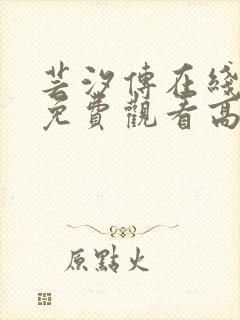 芸汐傳在綫
免費觀看高
原點火